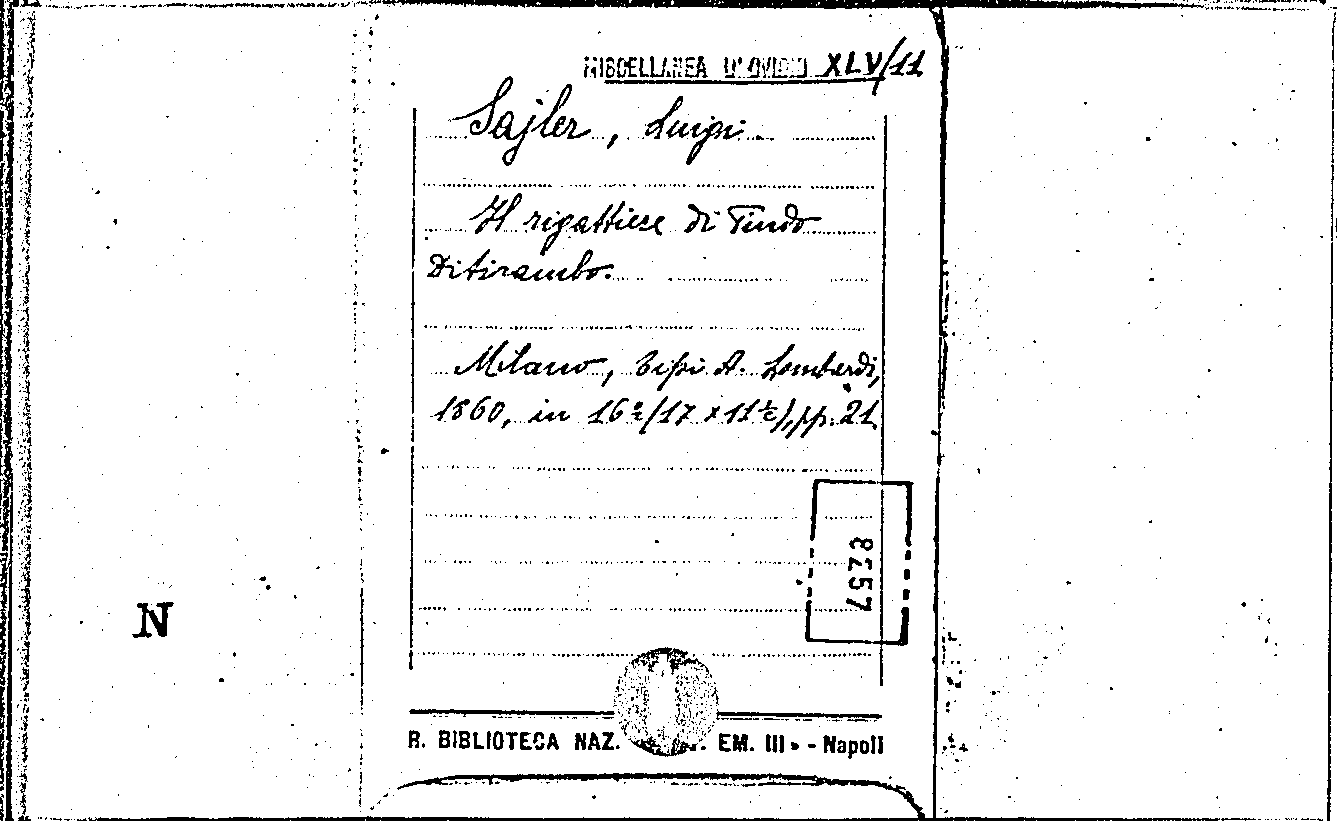 MISCELLANEA D'OVIDIO XLV/11
Sajler, Luigi.
Il rigattiere di Pindo
Ditirambo.
Milano, tipi A. Lombardi,
1860, in 16º (17 x 11½), pp. 21
8257
N
R. BIBLIOTECA NAZ. EM. III» - Napoli